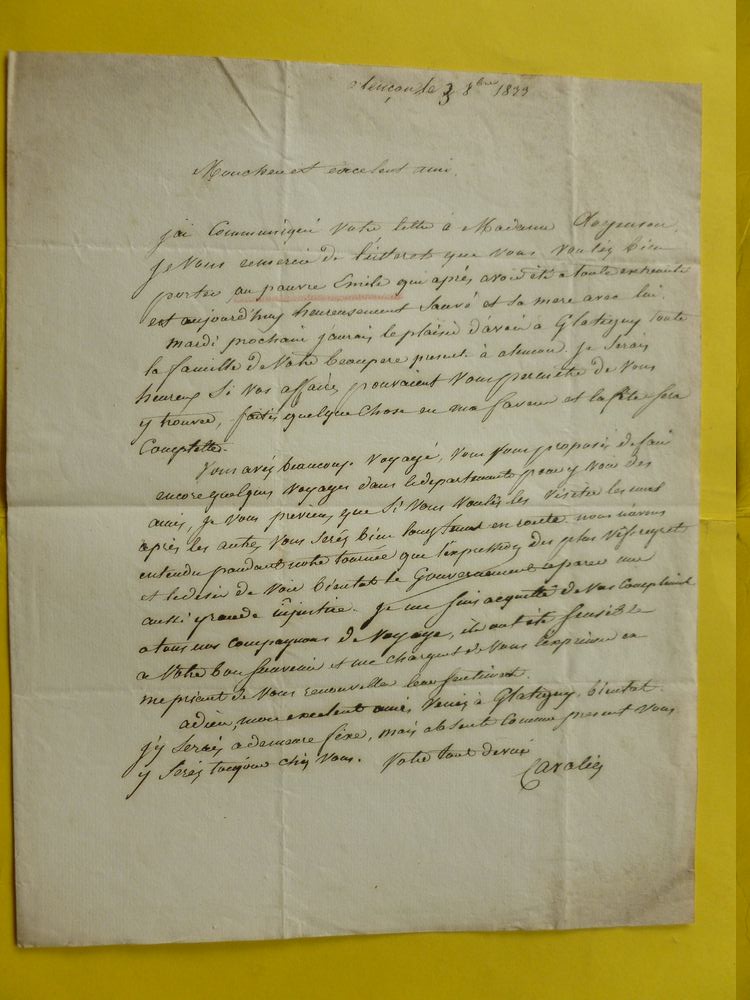 alençon le 3 8bre 1833
Mon cher et excelent ami,
j'ai Communiqué Votre lettre à Madame
je Vous remercie de l'interet que Vous Voulés bien
porter au pauvre Emile qui après avoir été a toute extremité
est aujourd'huy heureusement sauvé et sa mere avec lui.
mardi prochain j'aurais le plaisir d'avoir à Glatigny toute
la famille de Votre beaupere presente à alencon. je serais
heureux Si Vos affaires pouvaient Vous permettre de Vous
y trouver, faites quelque chose en ma faveur et la fête sera
Complette.
Vous avés beaucoup Voyagé, Vous Vous proposés de faire
encore quelques Voyages dans le departement pour y Voir des
amis, je Vous previens que Si Vous Voulés les Visiter les uns
après les autres Vous Serés bien longtems en route. nous n'avons
entendu pendant notre tournée que l'expression des plus Vifs regrets
et le desir de Voir bientot le Gouvernement reparer une
aussi grande injustice. je me suis acquitté de Vos Complimens
a tous nos Compagnons de Voyage, ils ont été Sensible
a Votre bon Souvenir et me chargent de Vous l'exprimer en
me priant de Vous renouveller leur Sentiment.
adieu, mon excelent ami, Venés à Glatigny, bientot
j'y Serai a demeure fixe, mais absent Comme present Vous
y Serés toujours chés Vous. Votre tout devoué